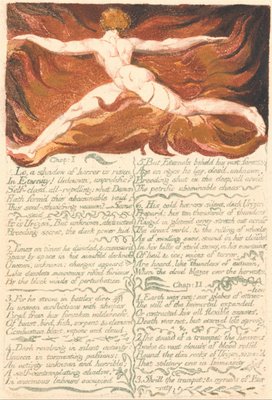 Chap: I
1. Lo, a shadow of horror is risen
In Eternity! Unknown, unprolific!
Self-closd, all-repelling; what Demon
Hath form'd this abominable void
This soul-shudd'ring vacuum?—Some said
It is Urizen, But unknown, abstracted
Brooding secret, the dark power hid.
2. Times on times he divided, & measur'd
Space by space in his ninefold darkness
Unseen, unknown! changes appeard
Like desolate mountains rifted furious
By the black winds of perturbation
3. For he strove in battles dire
In unseen conflictions with shapes
Bred from his forsaken wilderness,
Of beast, bird, fish, serpent & element
Combustion, blast, vapour and cloud.
4. Dark revolving in silent activity:
Unseen in tormenting passions;
An activity unknown and horrible;
A self-contemplating shadow,
In enormous labours occupied
5. But Eternals beheld his vast forests
Age on ages he lay, clos'd, unknown,
Brooding shut in the deep; all avoid
The petrific abominable chaos
6. His cold horrors silent, dark Urizen
Prepar'd: his ten thousands of thunders
Rang'd in gloom'd array stretch out across
The dread world, & the rolling of wheels
As of swelling seas, sound in his clouds
In his hills of stor'd snows, in his mountains
Of hail & ice; voices of terror,
Are heard, like thunders of autumn,
When the cloud blazes over the harvests
Chap: II
1. Earth was not: nor globes of attraction
The will of the Immortal expanded
Or contracted his all flexible senses.
Death was not, but eternal life sprung
2. The sound of a trumpet the heavens
Awoke & vast clouds of blood roll'd
Round the dim rocks of Urizen, so nam'd
That solitary one in Immensity
3. Shrill the trumpet: & myriads of Eter-